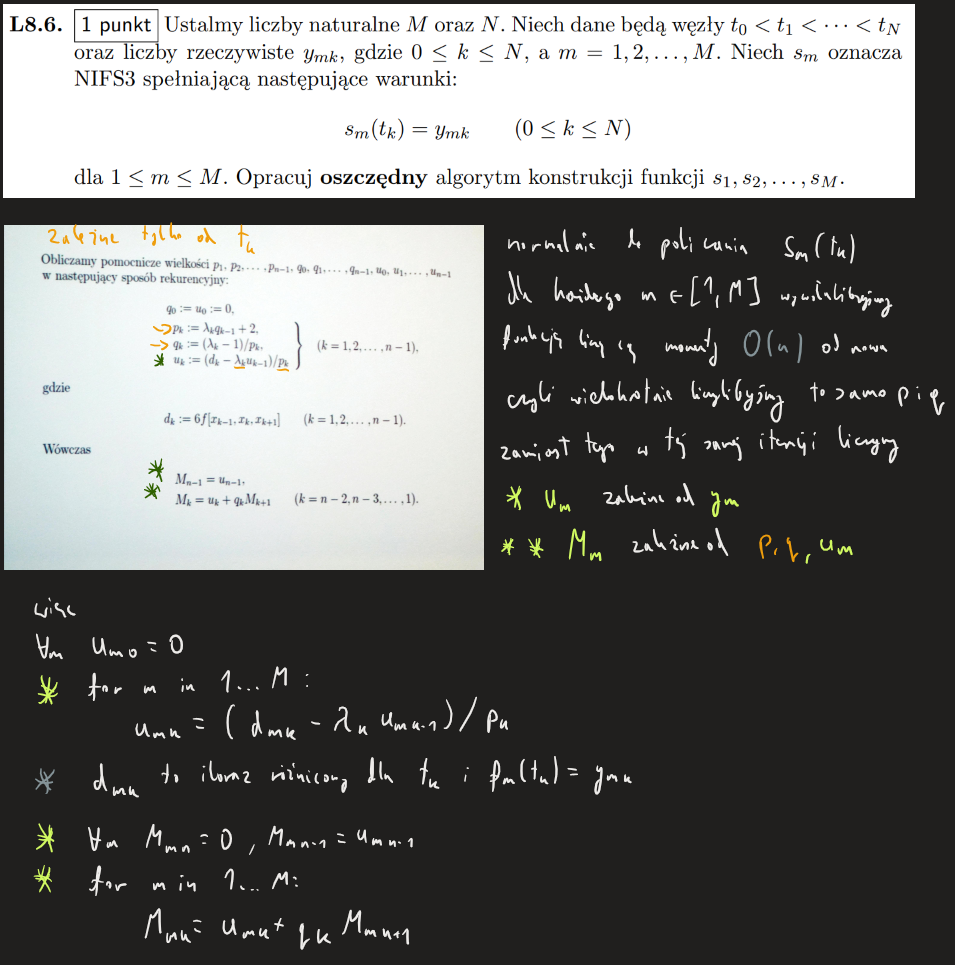 L8.6. 1 punkt Ustalmy liczby naturalne M oraz N. Niech dane będą węzły t₀ < t₁ < ⋯ < t_N
oraz liczby rzeczywiste y_mk, gdzie 0 ≤ k ≤ N, a m = 1, 2, …, M. Niech s_m oznacza
NIFS3 spełniającą następujące warunki:
s_m(t_k) = y_mk (0 ≤ k ≤ N)
dla 1 ≤ m ≤ M. Opracuj oszczędny algorytm konstrukcji funkcji s₁, s₂, …, s_M.
zależne tylko od t_k
Obliczamy pomocnicze wielkości p₁, p₂, …, p_n−1, q₀, q₁, …, q_n−1, u₀, u₁, …, u_n−1
w następujący sposób rekurencyjny:
q₀ := u₀ := 0,
p_k := λ_k q_k−1 + 2,
q_k := (λ_k − 1)/p_k,
u_k := (d_k − λ_k u_k−1)/p_k
(k = 1, 2, …, n − 1),
gdzie
d_k := 6f[x_k−1, x_k, x_k+1] (k = 1, 2, …, n − 1).
Wówczas
M_n−1 = u_n−1,
M_k = u_k + q_k M_k+1 (k = n − 2, n − 3, …, 1).
normalnie do policzenia S_m(t_k)
dla każdego m ∈ [1, M]
funkcję liczącą momenty O(n) od nowa
czyli wielokrotnie liczylibyśmy to samo p i q
zamiast tego w tej samej iteracji liczymy
* u_m zależne od y_m
* * M_m zależne od p, q, u_m
więc
∀m u_m0 = 0
* for m in 1... M:
u_mk = (d_mk − λ_k u_mk-1) / p_k
* d_mk to iloraz różnicowy dla t_k i f_m(t_k) = y_mk
* ∀m M_mn = 0, M_mn-1 = u_mn-1
* for m in 1... M:
M_mk = u_mk + q_k M_mk+1